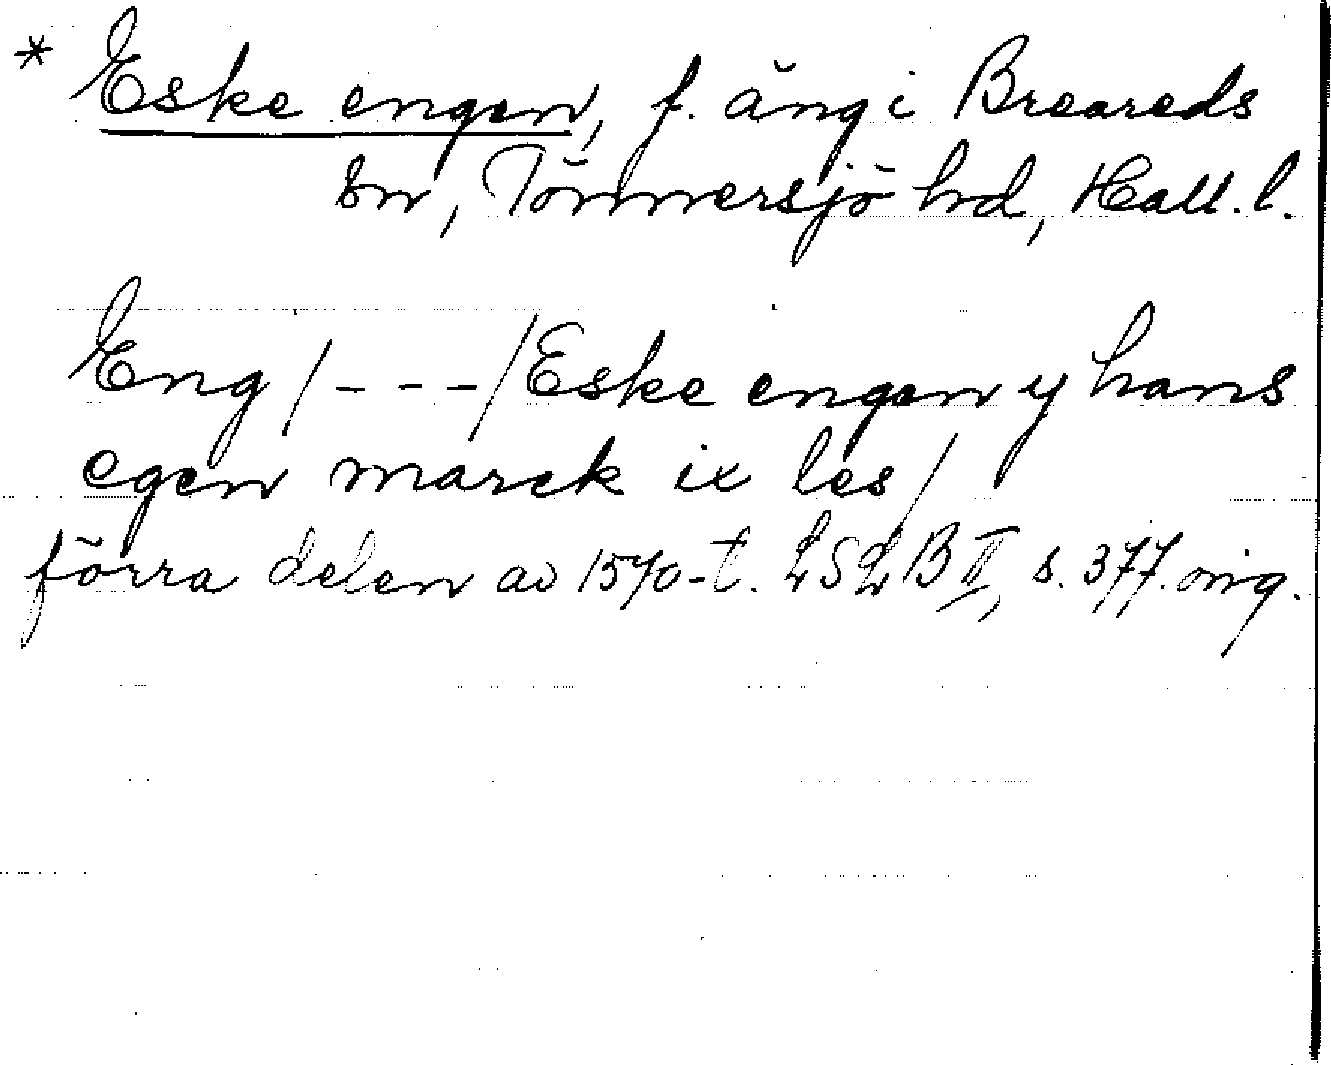 * Eske engen, f. äng i Breareds
sn, Tönnersjö hd, Hall. l.
Eng /---/ Eske engen y hans
egen marck ix les/
förra delen av 1570-t. LSLB II, s. 377. orig.